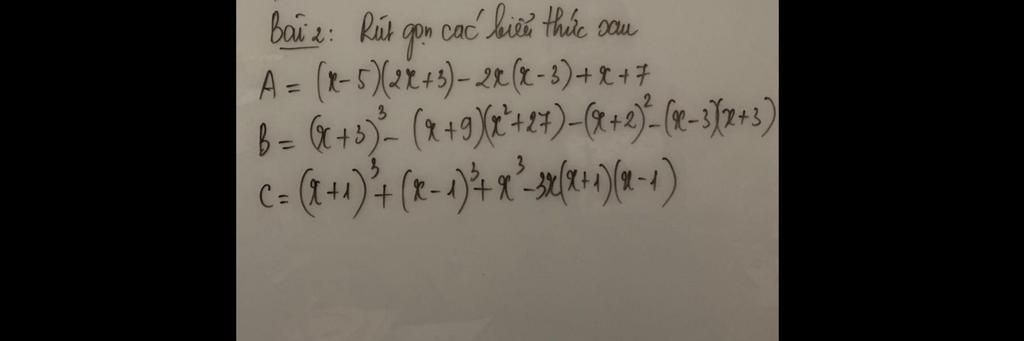 Bài 2: Rút gọn các biểu thức sau
A = (x-5)(2x+3) - 2x(x-3) + x + 7
B = (x+3)³ - (x+9)(x²+27) - (x+2)² - (x-3)(x+3)
C = (x+1)³ + (x-1)³ + x³ - 3x(x+1)(x-1)